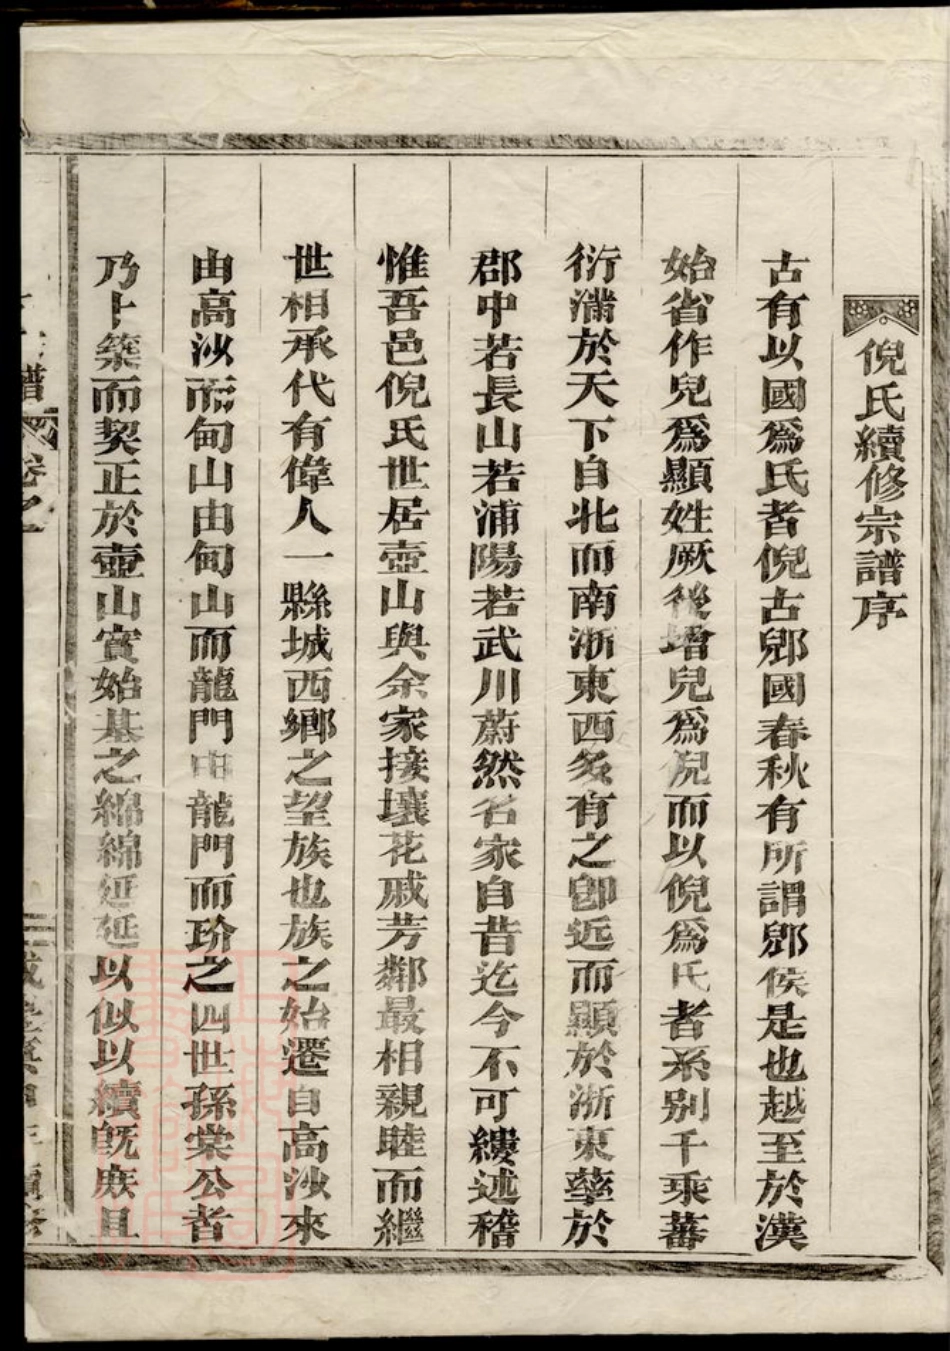 倪氏續修宗譜序
古有以國爲氏者倪古郳國春秋有所謂郳侯是也越至於漢
始省作兒爲顯姓厥後增兒爲倪而以倪爲氏者系别千乘蕃
衍滿於天下自北而南浙東西多有之卽近而顯於浙東㜸於
郡中若長山若浦陽若武川蔚然名家自昔迄今不可縷述稽
惟吾邑倪氏世居壺山與余家接壤花戚芳鄰最相親睦而繼
世相承代有偉人一縣城西鄉之望族也族之始遷自高沙來
由高沙而甸山由甸山而龍門由龍門而玠之四世孫棠公者
乃卜築而契正於壺山實始基之綿綿延延以似以續旣庶且
譜 卷之